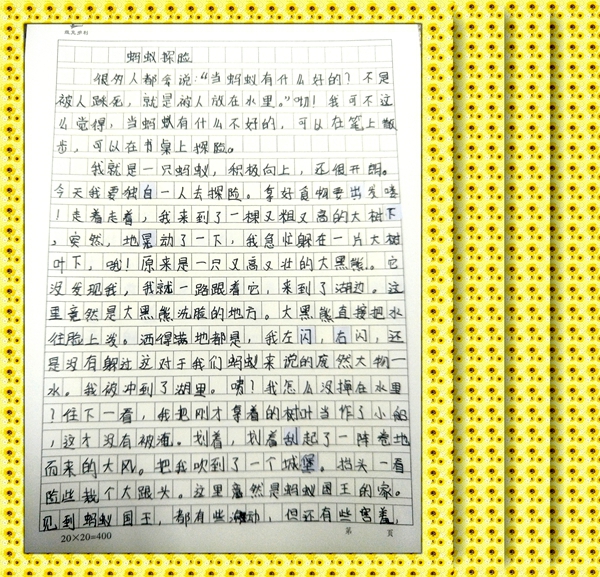 蚂蚁探险
很多人都会说:“当蚂蚁有什么好的?不是
被人踩死,就是被人放在水里。”切!我可不这
么觉得,当蚂蚁有什么不好的,可以在笔上散
步,可以在书桌上探险。
我就是一只蚂蚁,积极向上,还很开朗。
今天我要独自一人去探险。拿好食物要出发喽
!走着走着,我来到了一棵又粗又高的大树下
。突然,地晃动了一下,我急忙躲在一片大树
叶下,哦!原来是一只又高又壮的大黑熊。它
没发现我,我就一路跟着它,来到了湖边。这
里竟然是大黑熊洗脸的地方。大黑熊直接把水
往脸上泼。洒得满地都是,我左闪,右闪,还
是没有躲过这对于我们蚂蚁来说的庞然大物一
水。我被冲到了湖里。嗜?我怎么没掉在水里
?往下一看,我把刚才拿着的树叶当作了小船
,这才没有被淹。划着,划着刮起了一阵卷地
而来的大风。把我吹到了一个城堡。抬头一看
险些栽个大跟头。这里竟然是蚂蚁国王的家。
见到蚂蚁国王,都有些激动,但还有些害羞,
20×20=400
第 页